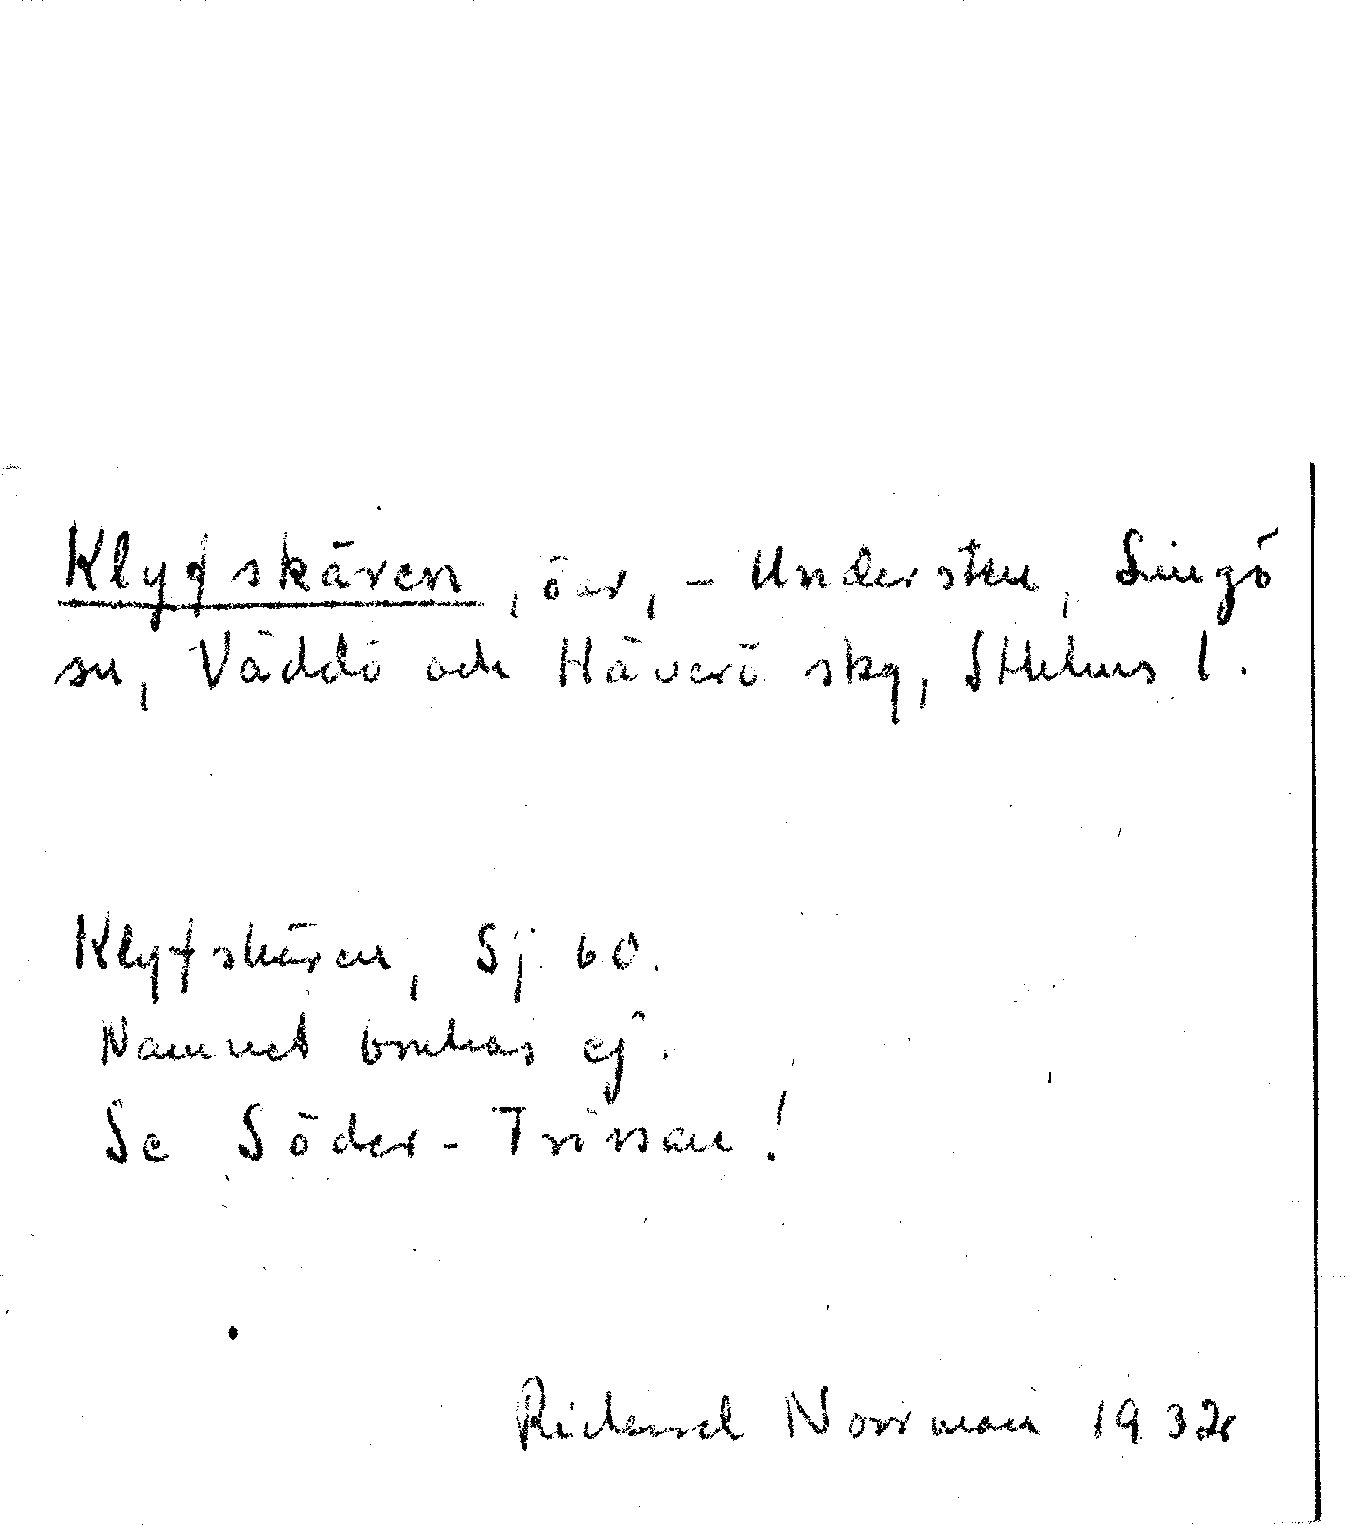 Klyfskären, öar, - Understen, Singö
sn, Väddö och Häverö skg, Sthlms l.
Klyfskären, Sj 60.
Namnet brukas ej.
Se Söder-Trissan!
Rickard Norrman 1932